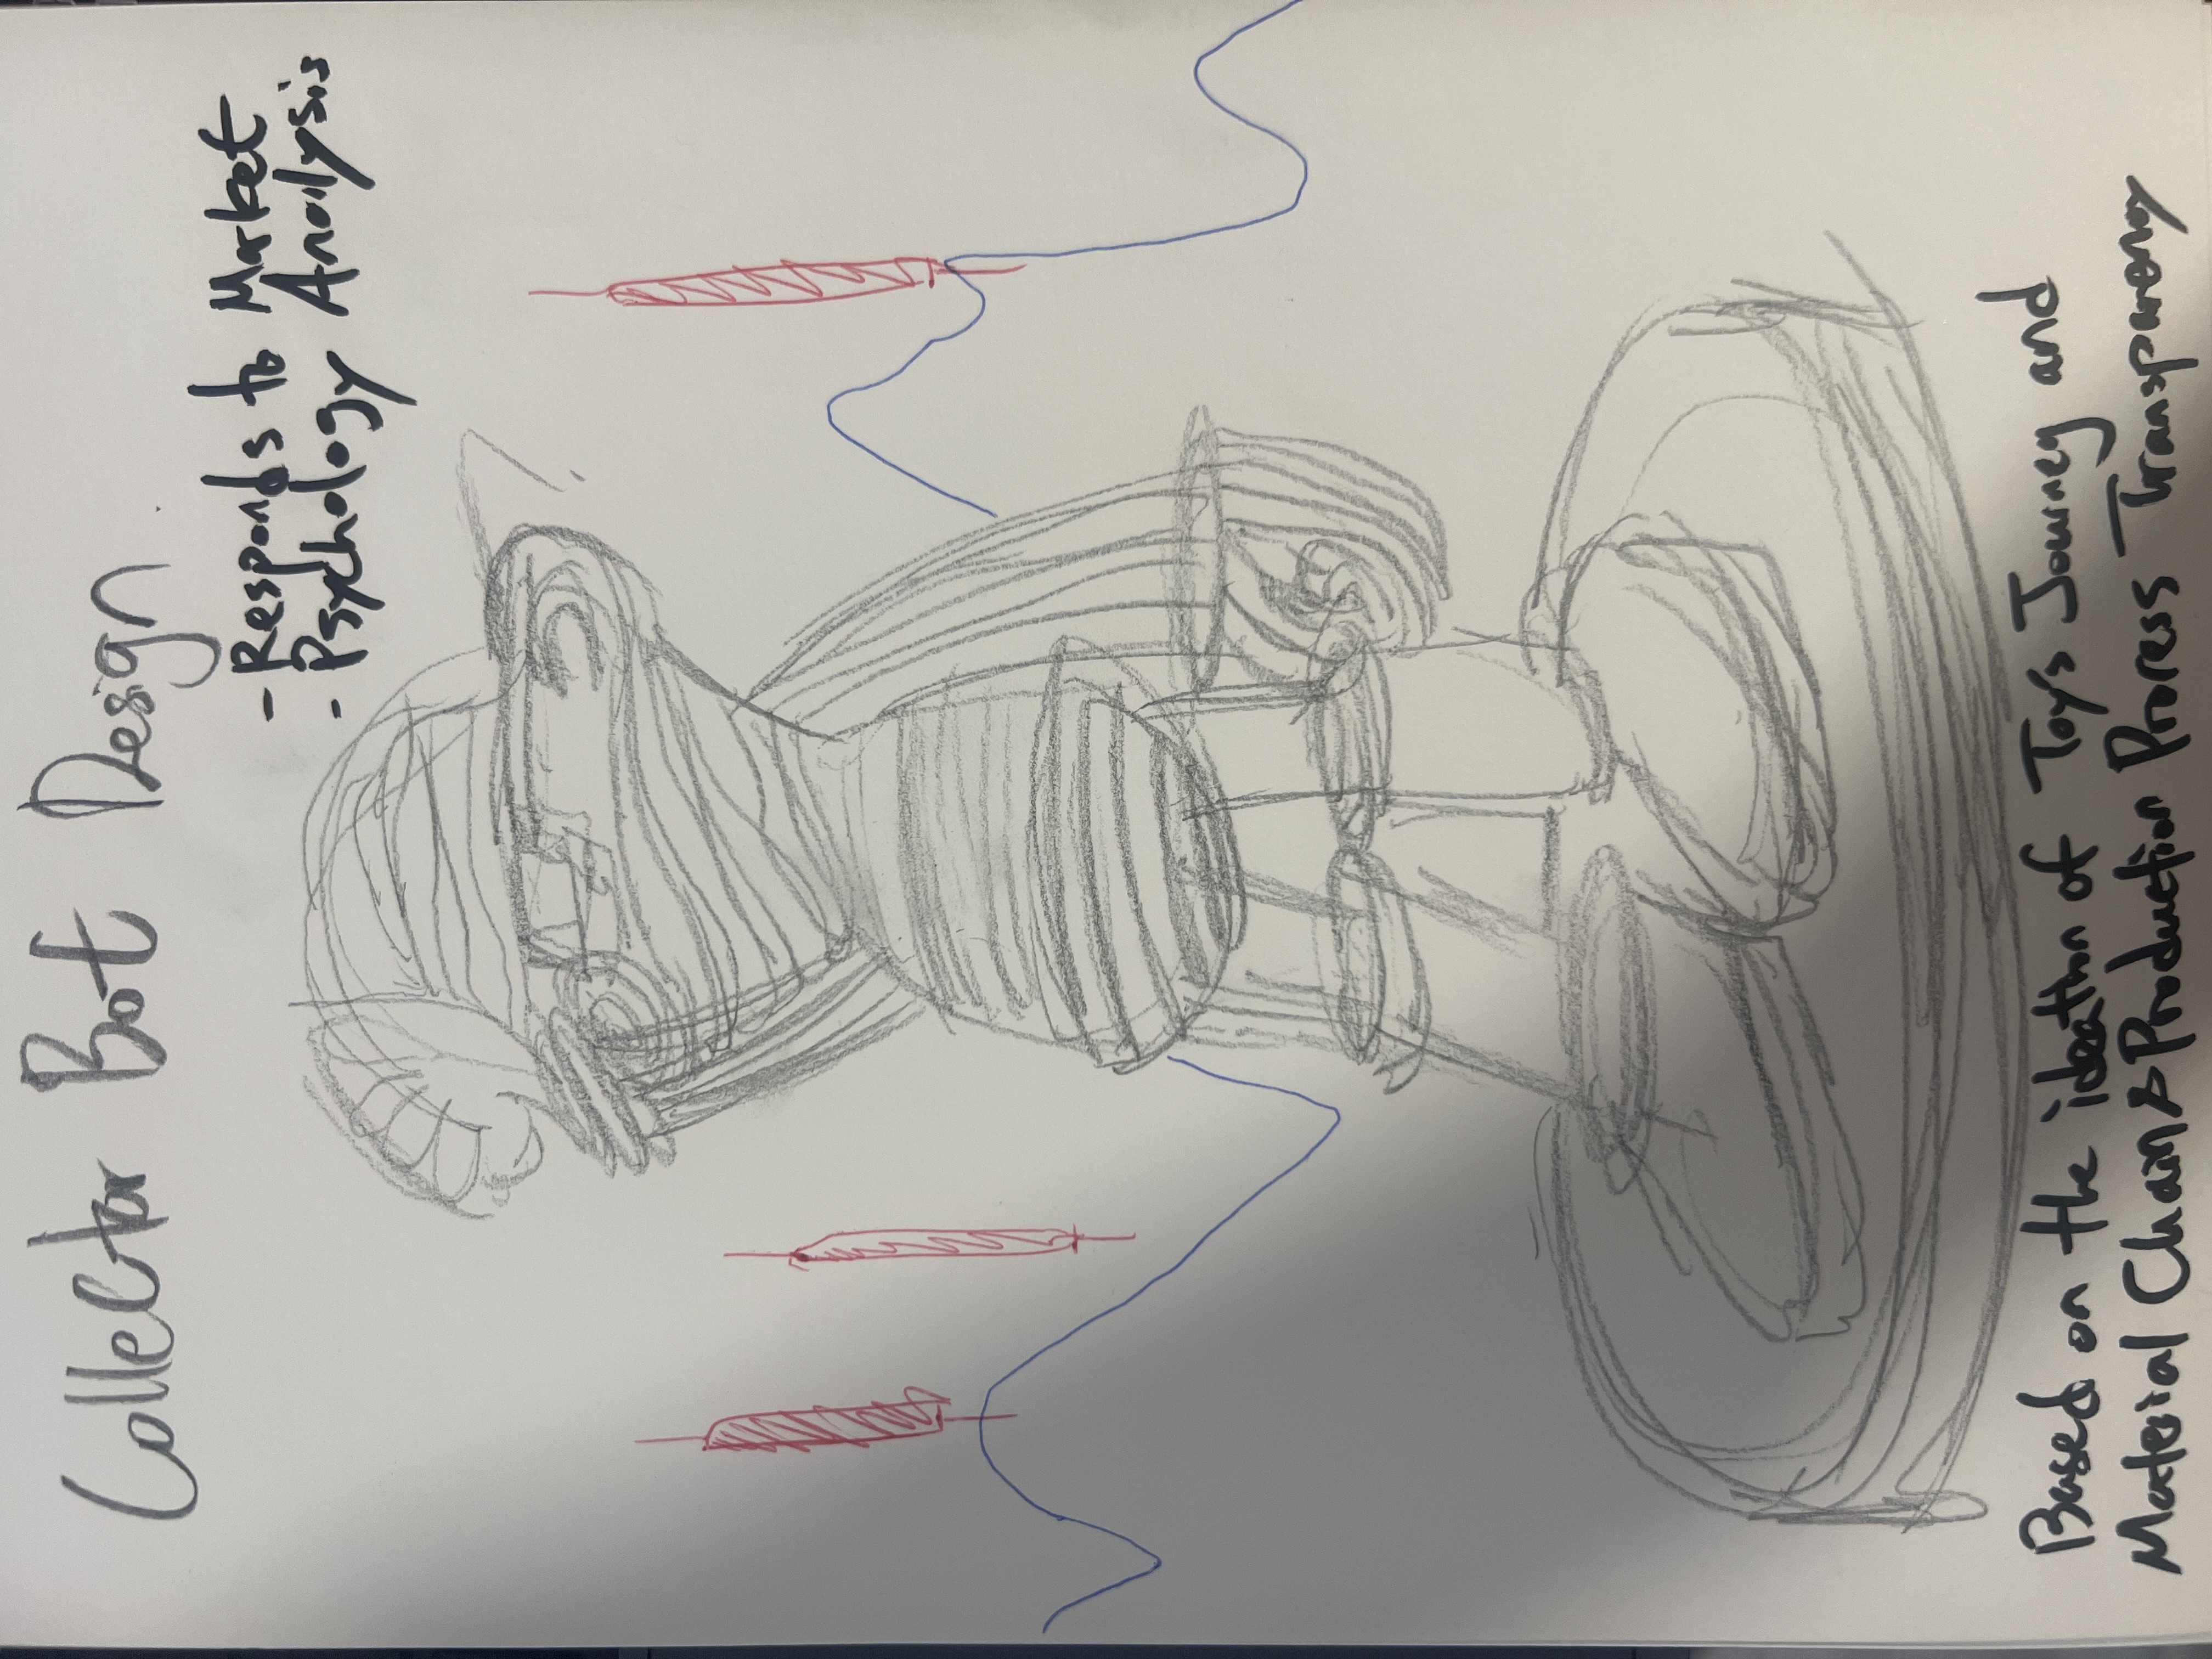 Collector Bot Design.
- Responds to Market
- Psychology Analysis
Based on the ideation of Toys Journey and
Material Chain & Production Process Transparency